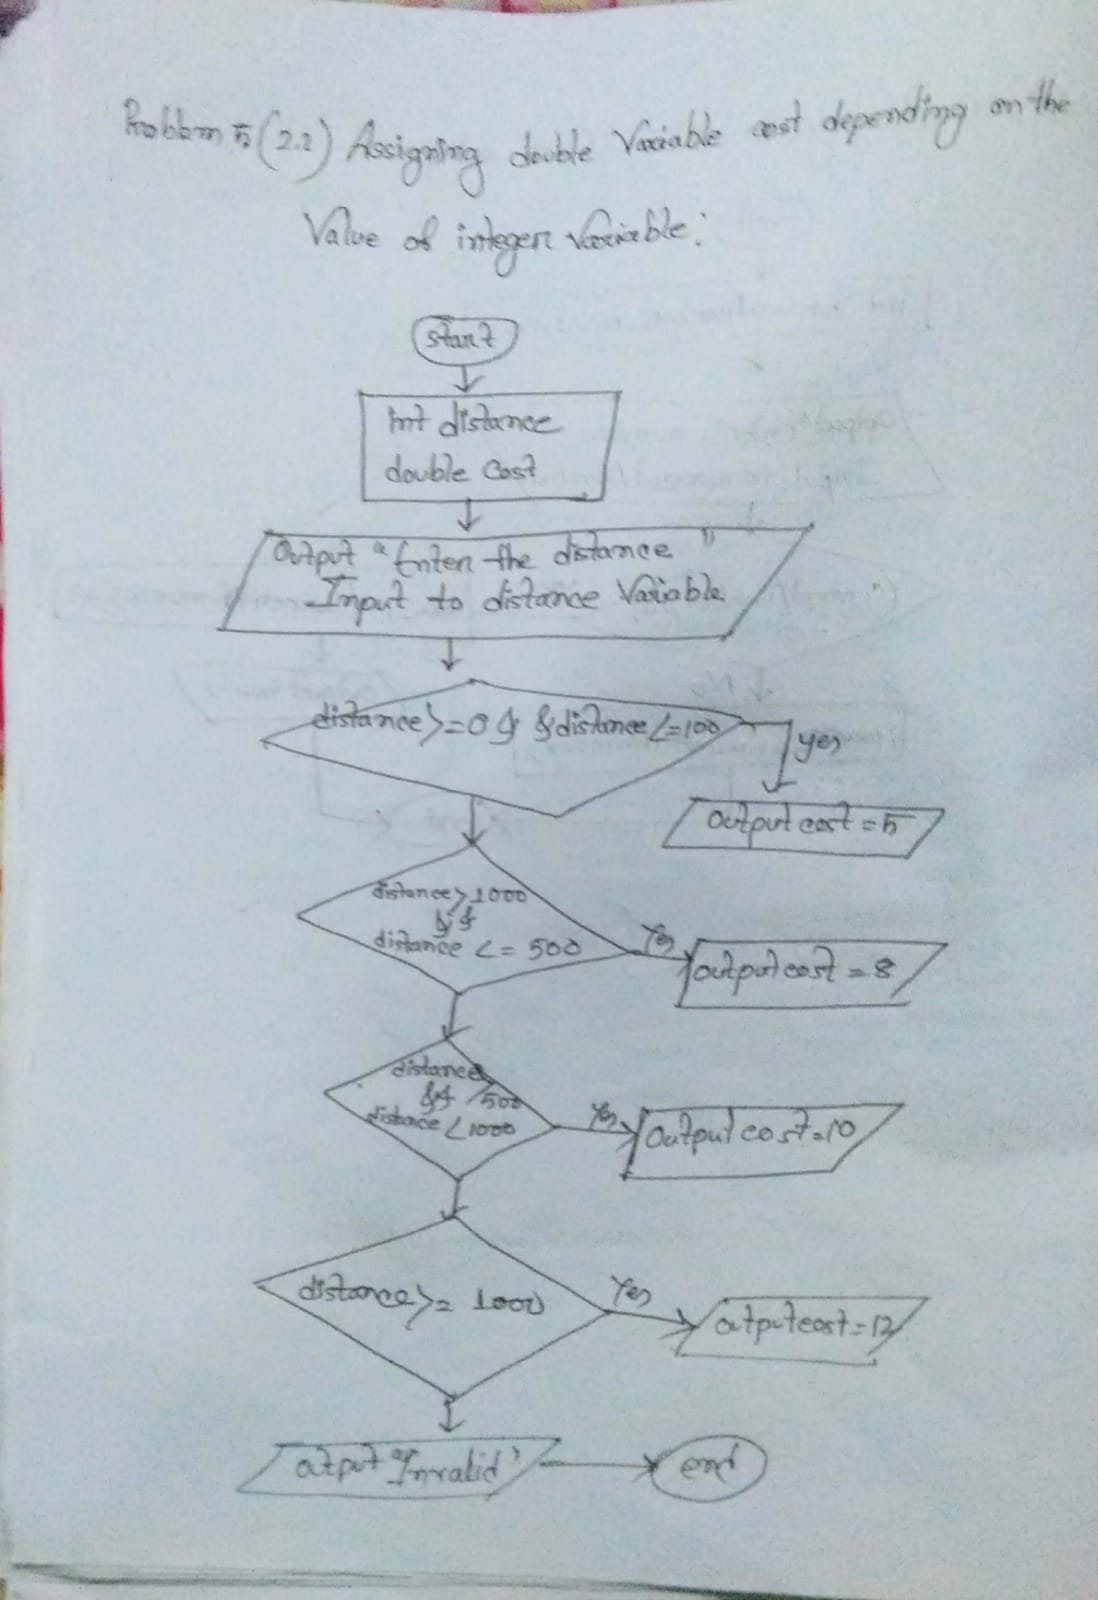 Problem 5 (2.2) Assigning double Variable cost depending on the
Value of integer variable:
start
int distance
double cost
Output "Enter the distance"
Input to distance Variable.
distance>=0 & &distance<=100
yes
output cost = 5
distance>1000
&&
distance <= 500
Yes
output cost = 8
distance
&& >500
distance <1000
Yes
Output cost=10
distance>= 1000
Yes
output cost=12
output "Invalid"
end